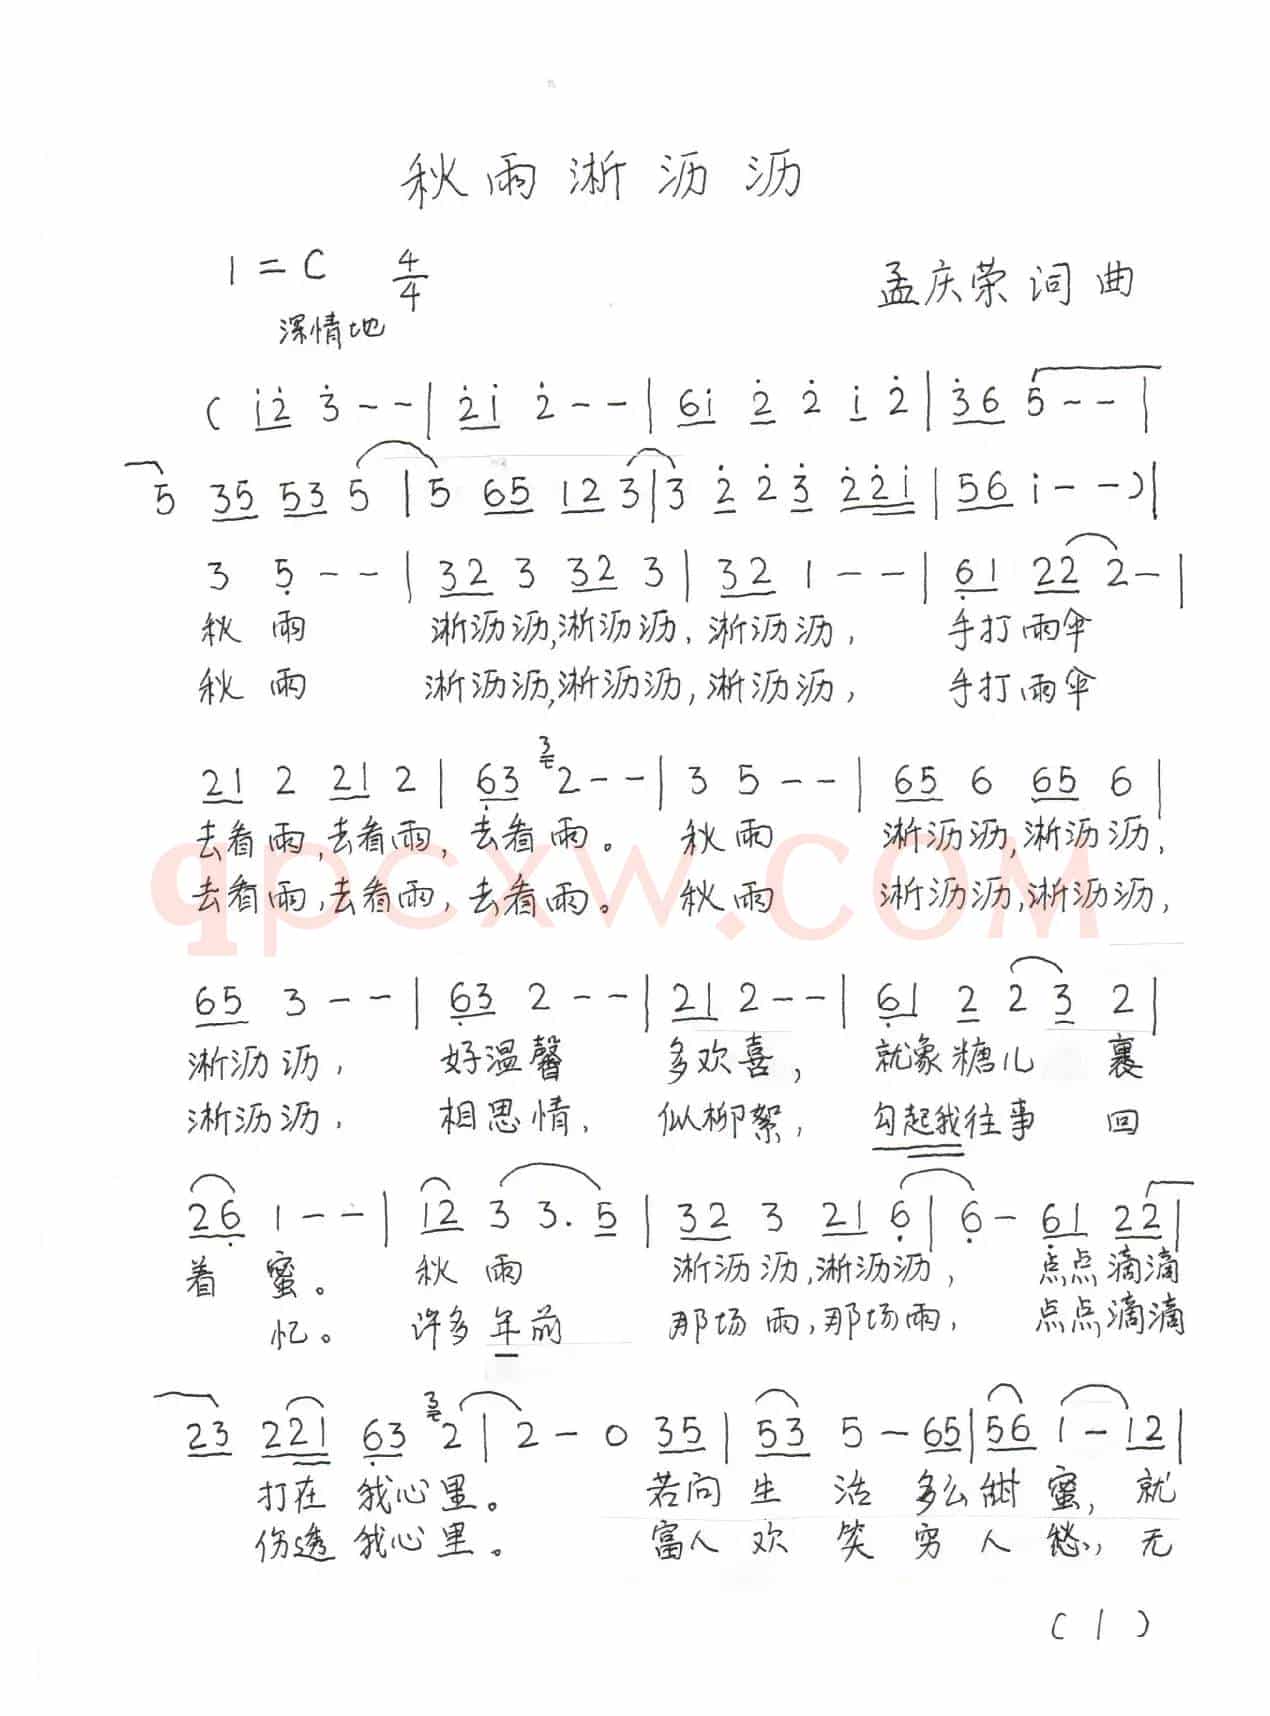 秋雨淅沥沥
1=C 4/4
孟庆荣 词曲
深情地
( i̲̇2̲̇ 3̇ - - | 2̲̇i̲̇ 2̇ - - | 6̲i̲̇ 2̲̇ 2̇ i̲̇ 2̇ | 3̲̇6̲ 5 - - |
5 3̲5̲ 5̲3̲ 5 | 5 6̲5̲ 1̲2̲ 3 | 3 2̲̇ 2̇ 3̲̇ 2̲̇2̳̇i̳̇ | 5̲6̲ i̇ - - ) |
3 5̣ - - | 3̲2̲ 3 3̲2̲ 3 | 3̲2̲ 1 - - | 6̲̣1̲ 2̲2̲ 2 - |
秋雨 淅沥沥,淅沥沥,淅沥沥, 手打雨伞
秋雨 淅沥沥,淅沥沥,淅沥沥, 手打雨伞
3
2̲1̲ 2 2̲1̲ 2 | 6̲̣3̲ 2 - - | 3 5 - - | 6̲5̲ 6 6̲5̲ 6 |
去看雨,去看雨,去看雨。 秋雨 淅沥沥,淅沥沥,
去看雨,去看雨,去看雨。 秋雨 淅沥沥,淅沥沥,
qpcxw.com
6̲5̲ 3 - - | 6̲̣3̲ 2 - - | 2̲1̲ 2 - - | 6̲̣1̲ 2̲ 2 3̲ 2 |
淅沥沥, 好温馨 多欢喜, 就象糖儿 裹
淅沥沥, 相思情, 似柳絮, 勾起我往事 回
2̲6̲̣ 1 - - | 1̲2̲ 3 3. 5̲ | 3̲2̲ 3 2̲1̲ 6̣ | 6̣ - 6̲̣1̲ 2̲2̲ |
着 蜜。 秋 雨 淅沥沥,淅沥沥, 点点滴滴
忆。 许多年前 那场雨,那场雨, 点点滴滴
3
2̲3̲ 2̲2̳1̳ 6̲̣3̲ 2 | 2 - 0 3̲5̲ | 5̲3̲ 5 - 6̲5̲ | 5̲6̲ 1 - 1̲2̲ |
打在 我心里。 若问 生 活 多么 甜 蜜, 就
伤透 我心里。 富人 欢 笑 穷 人 愁, 无
(1)